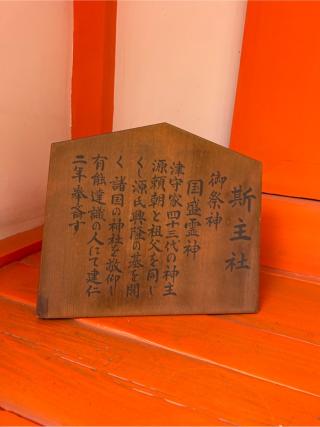 斯主社
御祭神
国盛霊神
津守家四十三代の神主
源頼朝と祖父を同じ
くし源氏興隆の基を開
く 諸国の神社を敬仰し
有能達識の人にて建仁
二年奉斎す